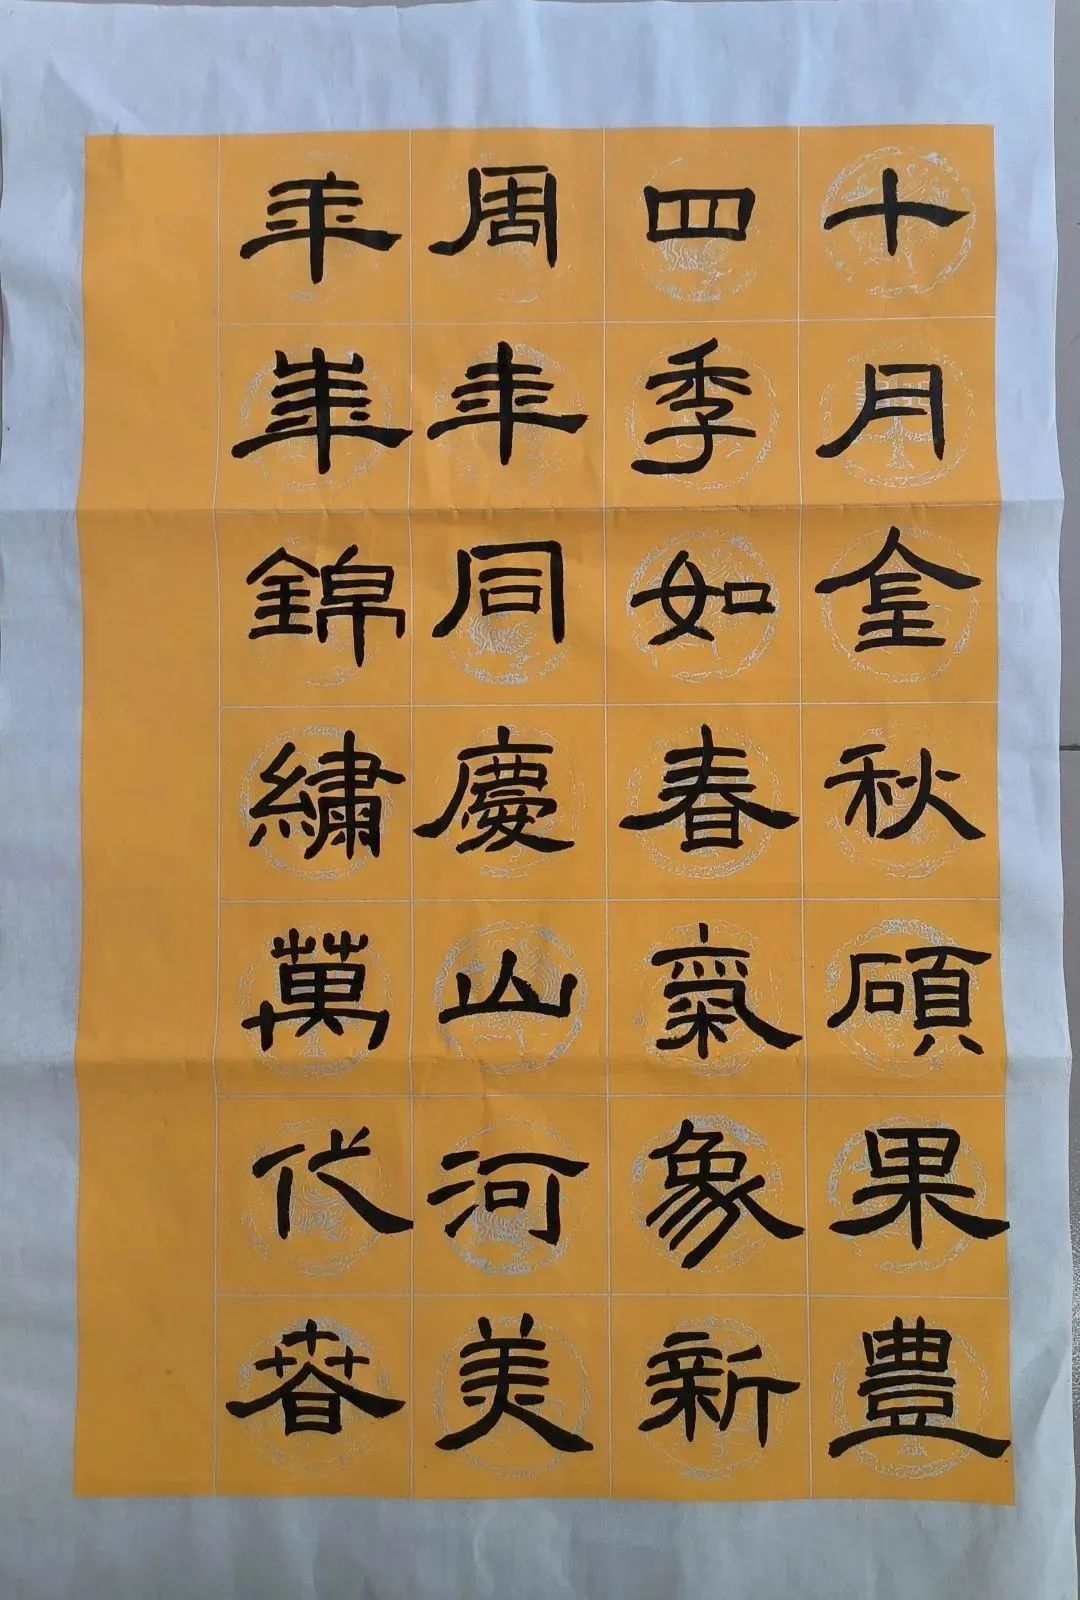 十月金秋碩果豐
四季如春氣象新
周年同慶山河美
華業錦繡萬代春